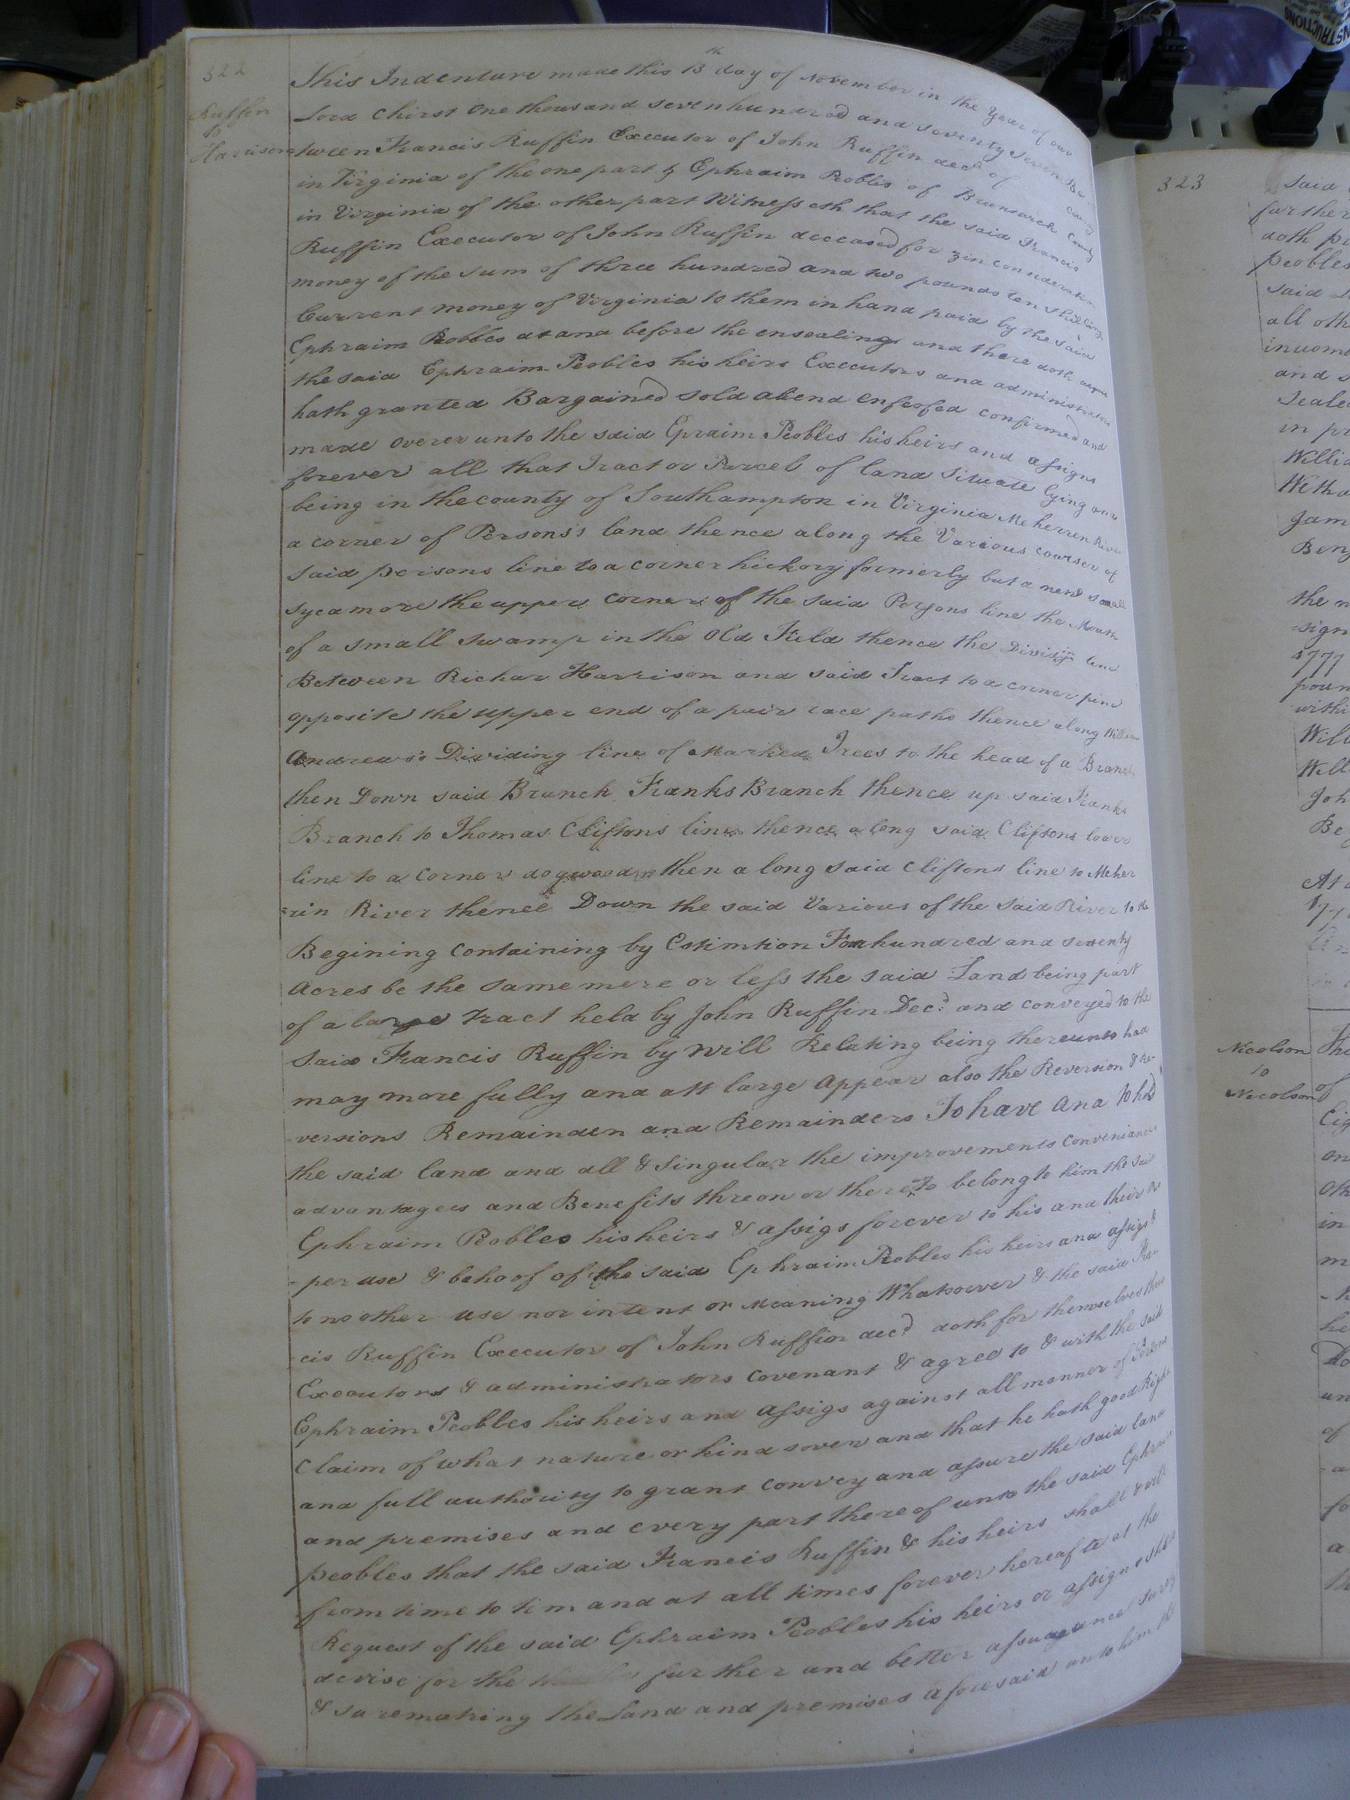 322
Ruffin
to
Harrison
This Indenture made this 13th day of November in the Year of our
Lord Chirst One thousand seven hundred and seventy seven Be
tween Francis Ruffin Executor of John Ruffin decd of County
in Virginia of the one part & Ephraim Peobles of Brunswick County
in Virginia of the other part Witnesseth that the said Francis
Ruffin Executor of John Ruffin deceased for & in consideration
money of the sum of three hundred and two pounds ten shillings
Current money of Virginia to them in hand paid by the said
Ephraim Peobles at and before the ensealing and there doth
the said Ephraim Peobles his heirs Executors and administrators
hath granted Bargained sold aliend Enfeofed confirmed and
made overer unto the said Epraim Peobles his heirs and assigns
forever all that Tract or Parcel of land Situate lying and
being in the county of Southampton in Virginia Meherren River
a corner of Persons's land thence along the Various courser of
said persons line to a corner hickory formerly but a new small
sycamore the upper corner of the said Persons line the Mouth
of a small swamp in the Old Field thence the Divisijn line
Between Richar Harrison and said Tract to a corner pine
opposite the upper end of a pair race paths thence along William
Andrews's Dividing line of Marked Trees to the head of a Branch
then Down said Branch Franks Branch thence up said Franks
Branch to Thomas Cliftons line thence along said Cliftons lower
line to a corner dogwood then a long said Cliftons line to Meher
rin River thence Down the said Various of the said River to the
Begining Containing by Estimtion Four hundred and seventy
Acres be the same mere or less the said Land being part
of a large Tract held by John Ruffin Decd and conveyed to the
said Francis Ruffin by will Relating being thereunto had
may more fully and att large appear also the Reversion & Re-
versions Remainden and Remainders To have and to hold
the said land and all & singular the improvements Conveniances
advantages and Benefits threon or thereto belong to him the said
Ephraim Peobles his heirs & assigs forever to his and their Pro
-per use & behoof of the said Ephraim Peobles his heirs and assigs &
to no other use nor intent or meaning Whatsoever & the said Fran-
cis Ruffin Executor of John Ruffin decd doth for themselves their
Executors & administrators covenant & agree to & with the said
Ephraim Peobles his heirs and assigs against all manner of Persons
claim of what nature or kind sover and that he hath good Right
and full authority to grant convey and assure the said land
and premises and every part thereof unto the said Ephraim
Peobles that the said Francis Ruffin & his heirs shall & will
from time to tim and at all times forever hereafte at the
Request of the said Ephraim Peobles his heirs or assigns shall
devise for the further and better assurance
& su remaking the Land and premises aforesaid unto him the
323
said
further
doth
Peobles
said
all oth
and s
Seale
in pr
Willia
With
Jam
Benj
the
sign
1777
poun
withi
Will
Will
Joh
Be
At a
Nicolson
to
Nicolson
of